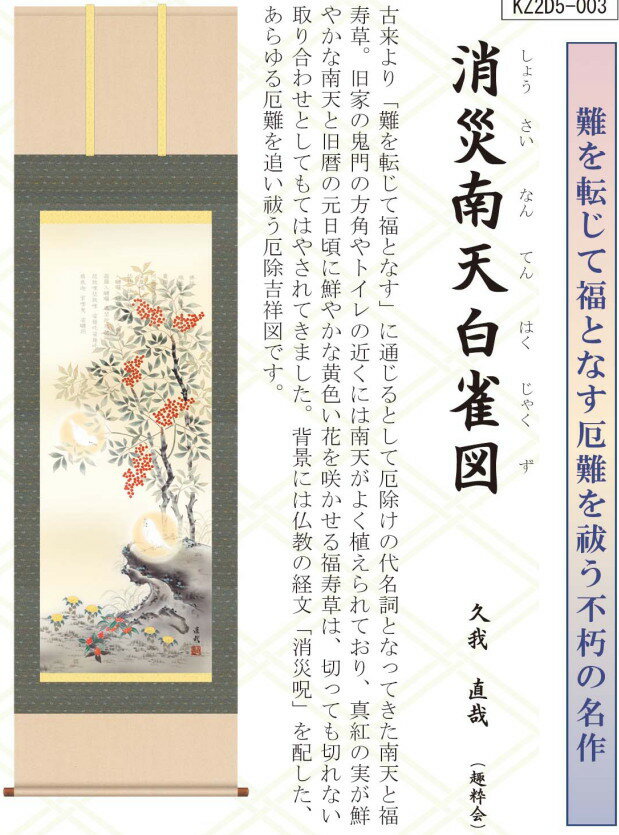 KZ2D5-003
難を転じて福となす厄難を祓う不朽の名作
消災南天白雀図
しょう さい なん てん はく じゃく ず
久我 直哉 (趣粋会)
古来より「難を転じて福となす」に通じるとして厄除けの代名詞となってきた南天と福
寿草。旧家の鬼門の方角やトイレの近くには南天がよく植えられており、真紅の実が鮮
やかな南天と旧暦の元日頃に鮮やかな黄色い花を咲かせる福寿草は、切っても切れない
取り合わせとしてもてはやされてきました。背景には仏教の経文「消災呪」を配した、
あらゆる厄難を追い祓う厄除吉祥図です。